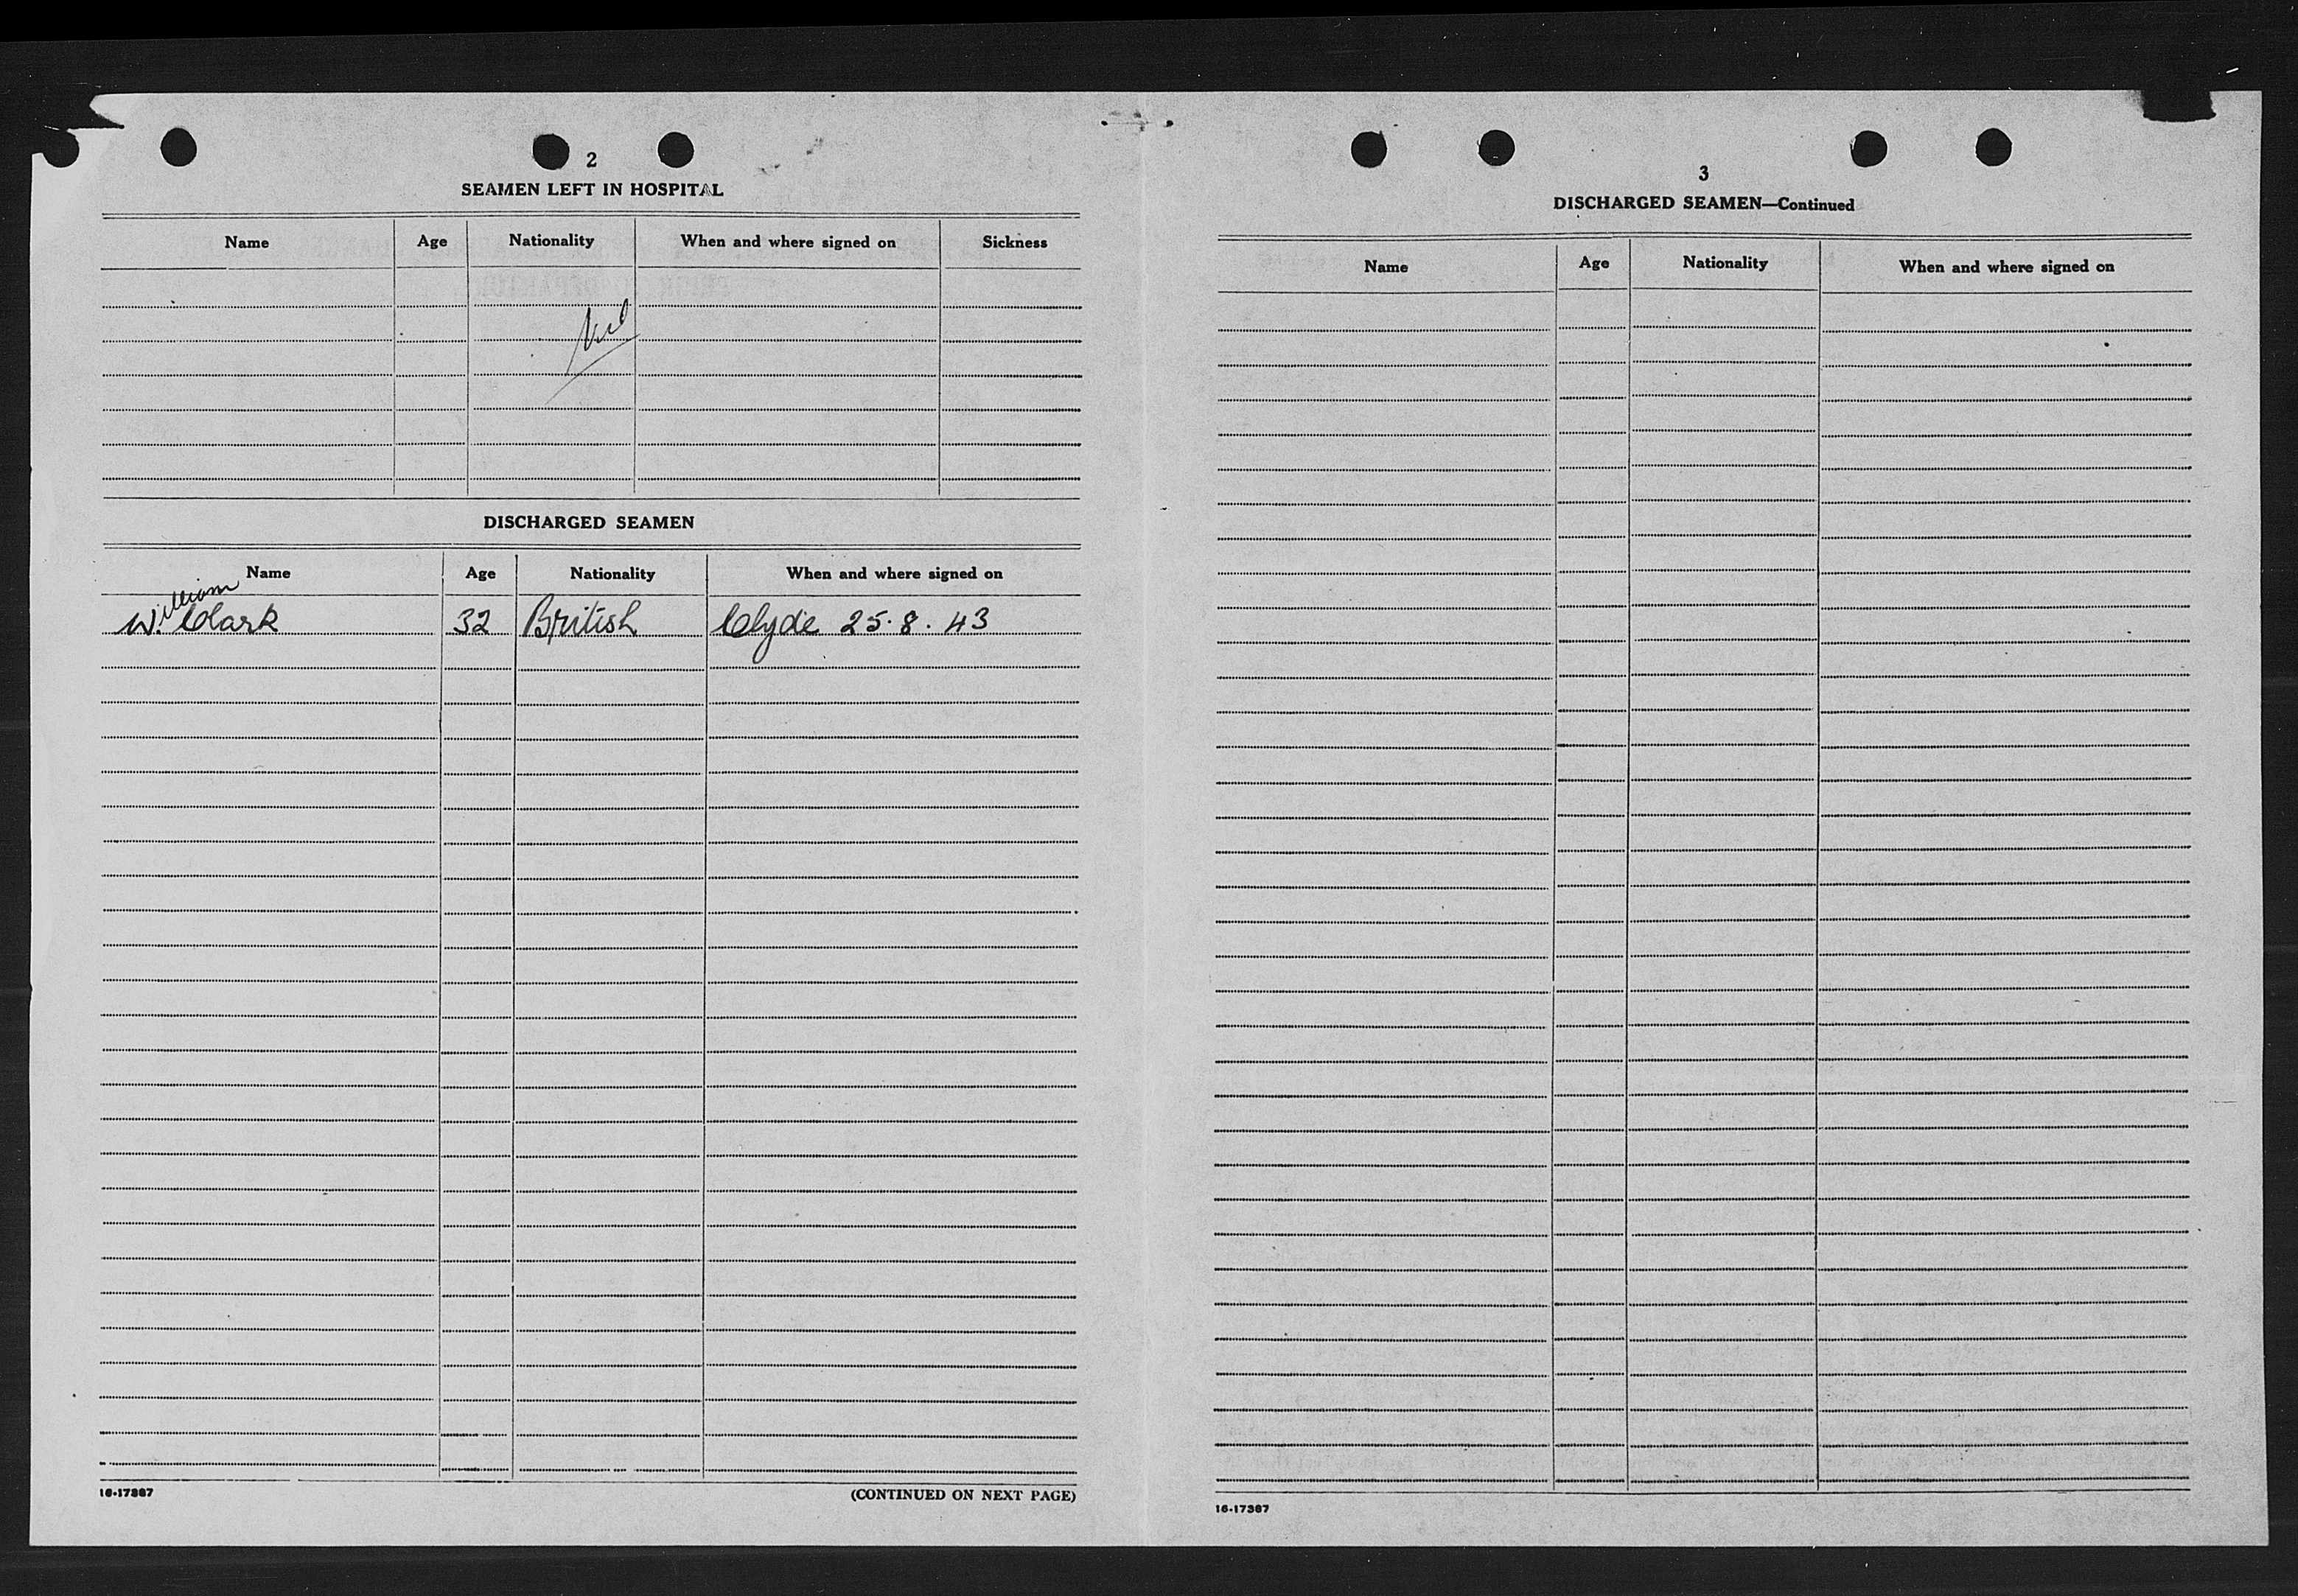 2
SEAMEN LEFT IN HOSPITAL
Name Age Nationality When and where signed on Sickness
Nil
DISCHARGED SEAMEN
Name Age Nationality When and where signed on
William
W. Clark 32 British Clyde 25.8.43
16-17387
(CONTINUED ON NEXT PAGE)
3
DISCHARGED SEAMEN—Continued
Name Age Nationality When and where signed on
16-17387